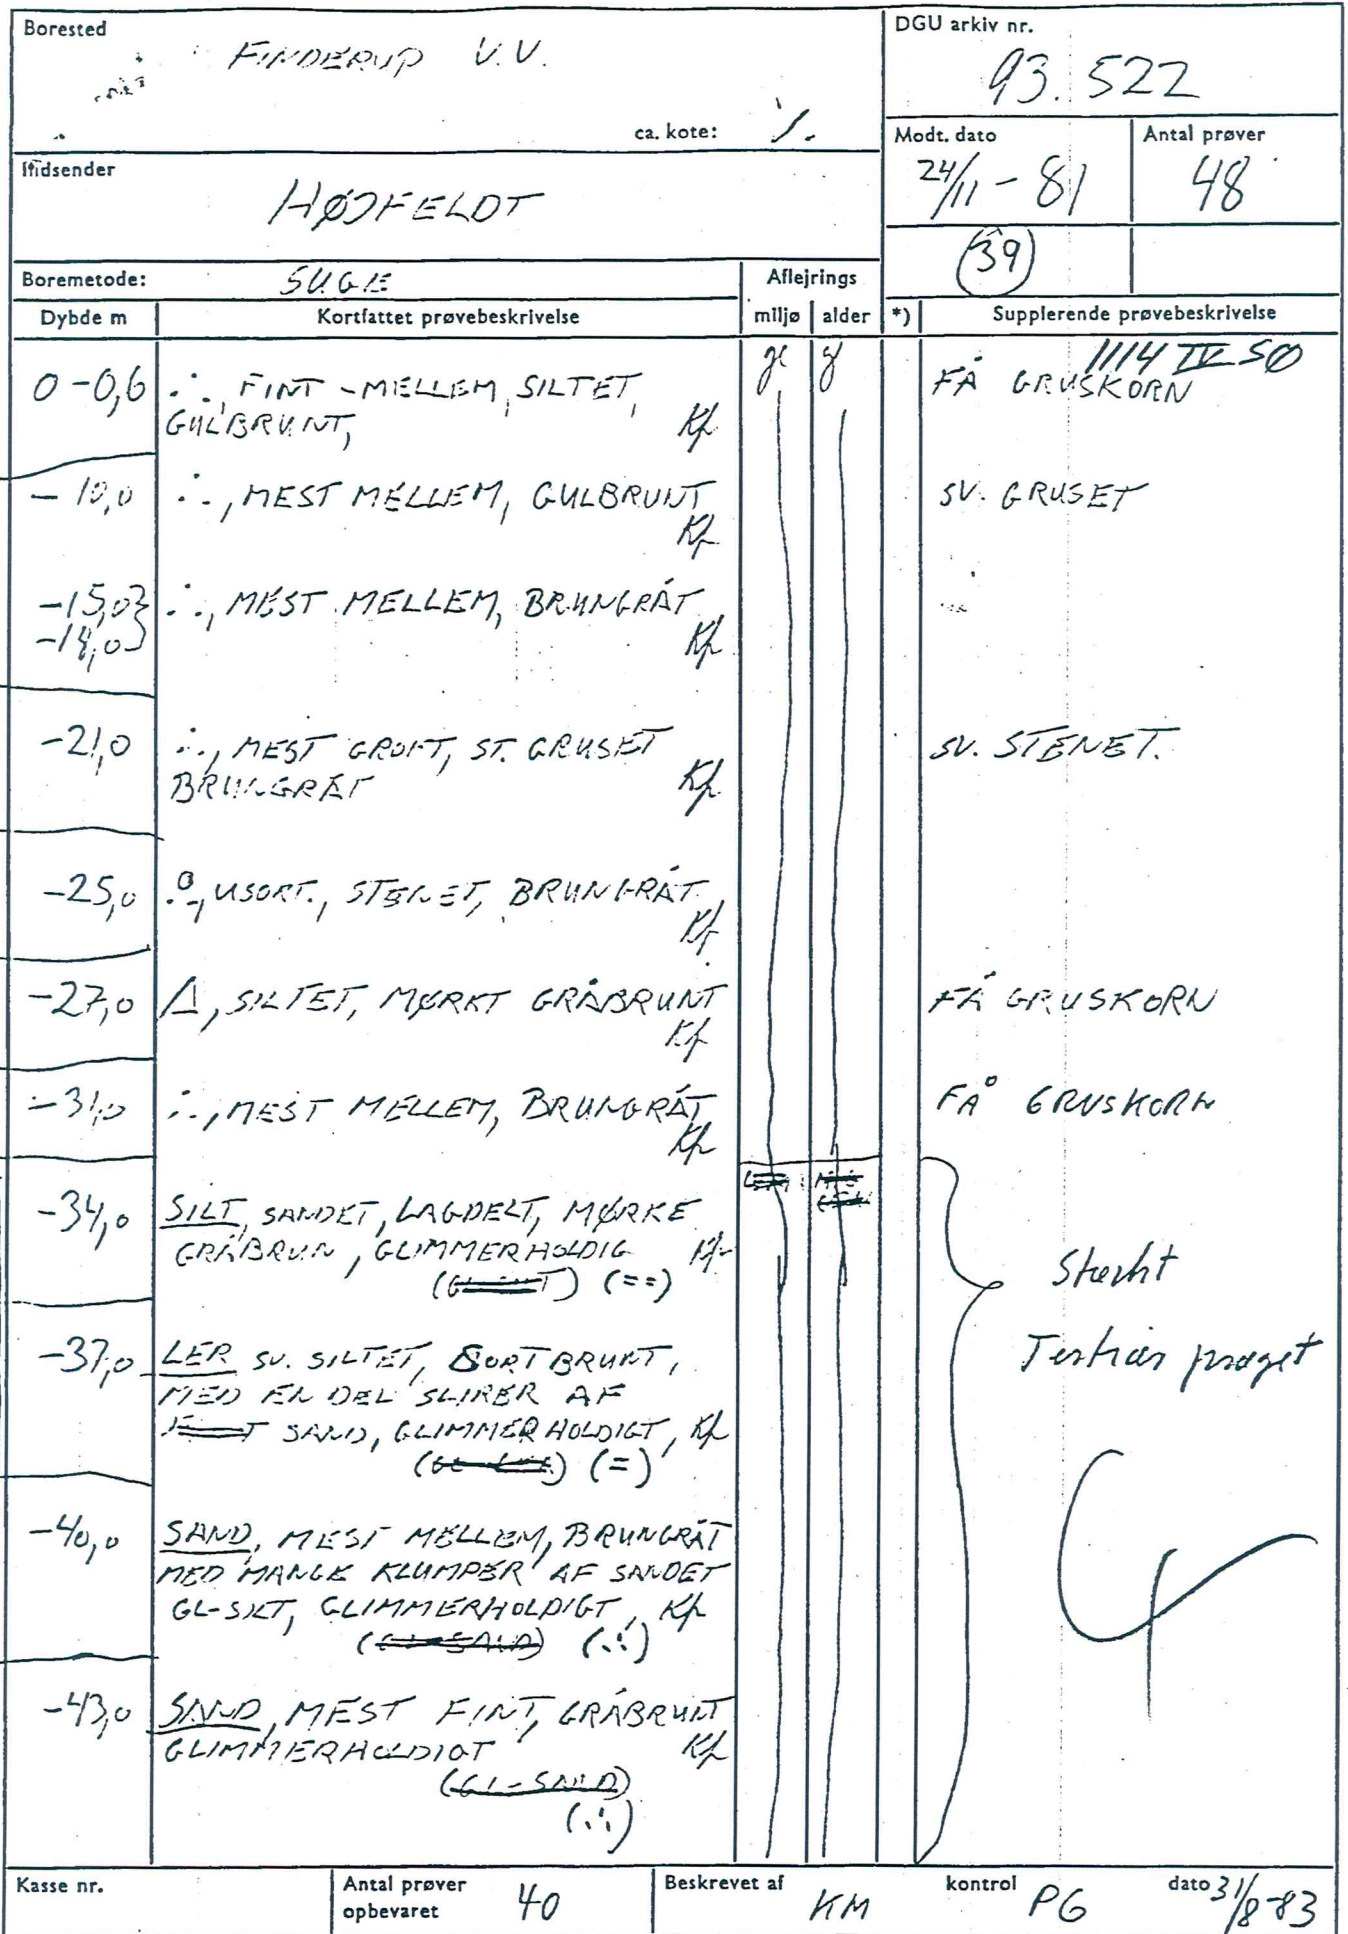 Borested
FINDERUP V.V.
ca. kote: ./.
DGU arkiv nr.
93.522
Modt. dato
24/11-81
Antal prøver
48
Indsender
HØJFELDT
(39)
Boremetode: SUGE
Aflejrings
Dybde m
Kortfattet prøvebeskrivelse
miljø
alder
*)
Supplerende prøvebeskrivelse
1114 IV SØ
0-0,6 ∴, FINT-MELLEM, SILTET, gl g FÅ GRUSKORN
GULBRUNT, Kf
-10,0 ∴, MEST MELLEM, GULBRUNT SV. GRUSET
Kf
-15,0} ∴, MEST MELLEM, BRUNGRÅT
-18,0} Kf
-21,0 ∴, MEST GROFT, ST. GRUSET SV. STENET.
BRUNGRÅT Kf
-25,0 USORT., STENET, BRUNGRÅT
Kf
-27,0 △, SILTET, MØRKT GRÅBRUNT FÅ GRUSKORN
Kf
-31,0 ∴, MEST MELLEM, BRUNGRÅT FÅ GRUSKORN
Kf
-34,0 SILT, SANDET, LAGDELT, MØRKE
GRÅBRUN, GLIMMERHOLDIG Kf
(==)
Stærkt
-37,0 LER SV. SILTET, SORTBRUNT, Tertiær præget
MED EN DEL SLIRER AF
SAND, GLIMMERHOLDIGT, Kf
(=)
-40,0 SAND, MEST MELLEM, BRUNGRÅT
MED MANGE KLUMPER AF SANDET
GL-SILT, GLIMMERHOLDIGT, Kf
(GL-SAND) (∴)
-43,0 SAND, MEST FINT, GRÅBRUNT
GLIMMERHOLDIGT Kf
(GL-SAND)
(∴)
Kasse nr.
Antal prøver
opbevaret 40
Beskrevet af KM
kontrol PG
dato 31/8-83